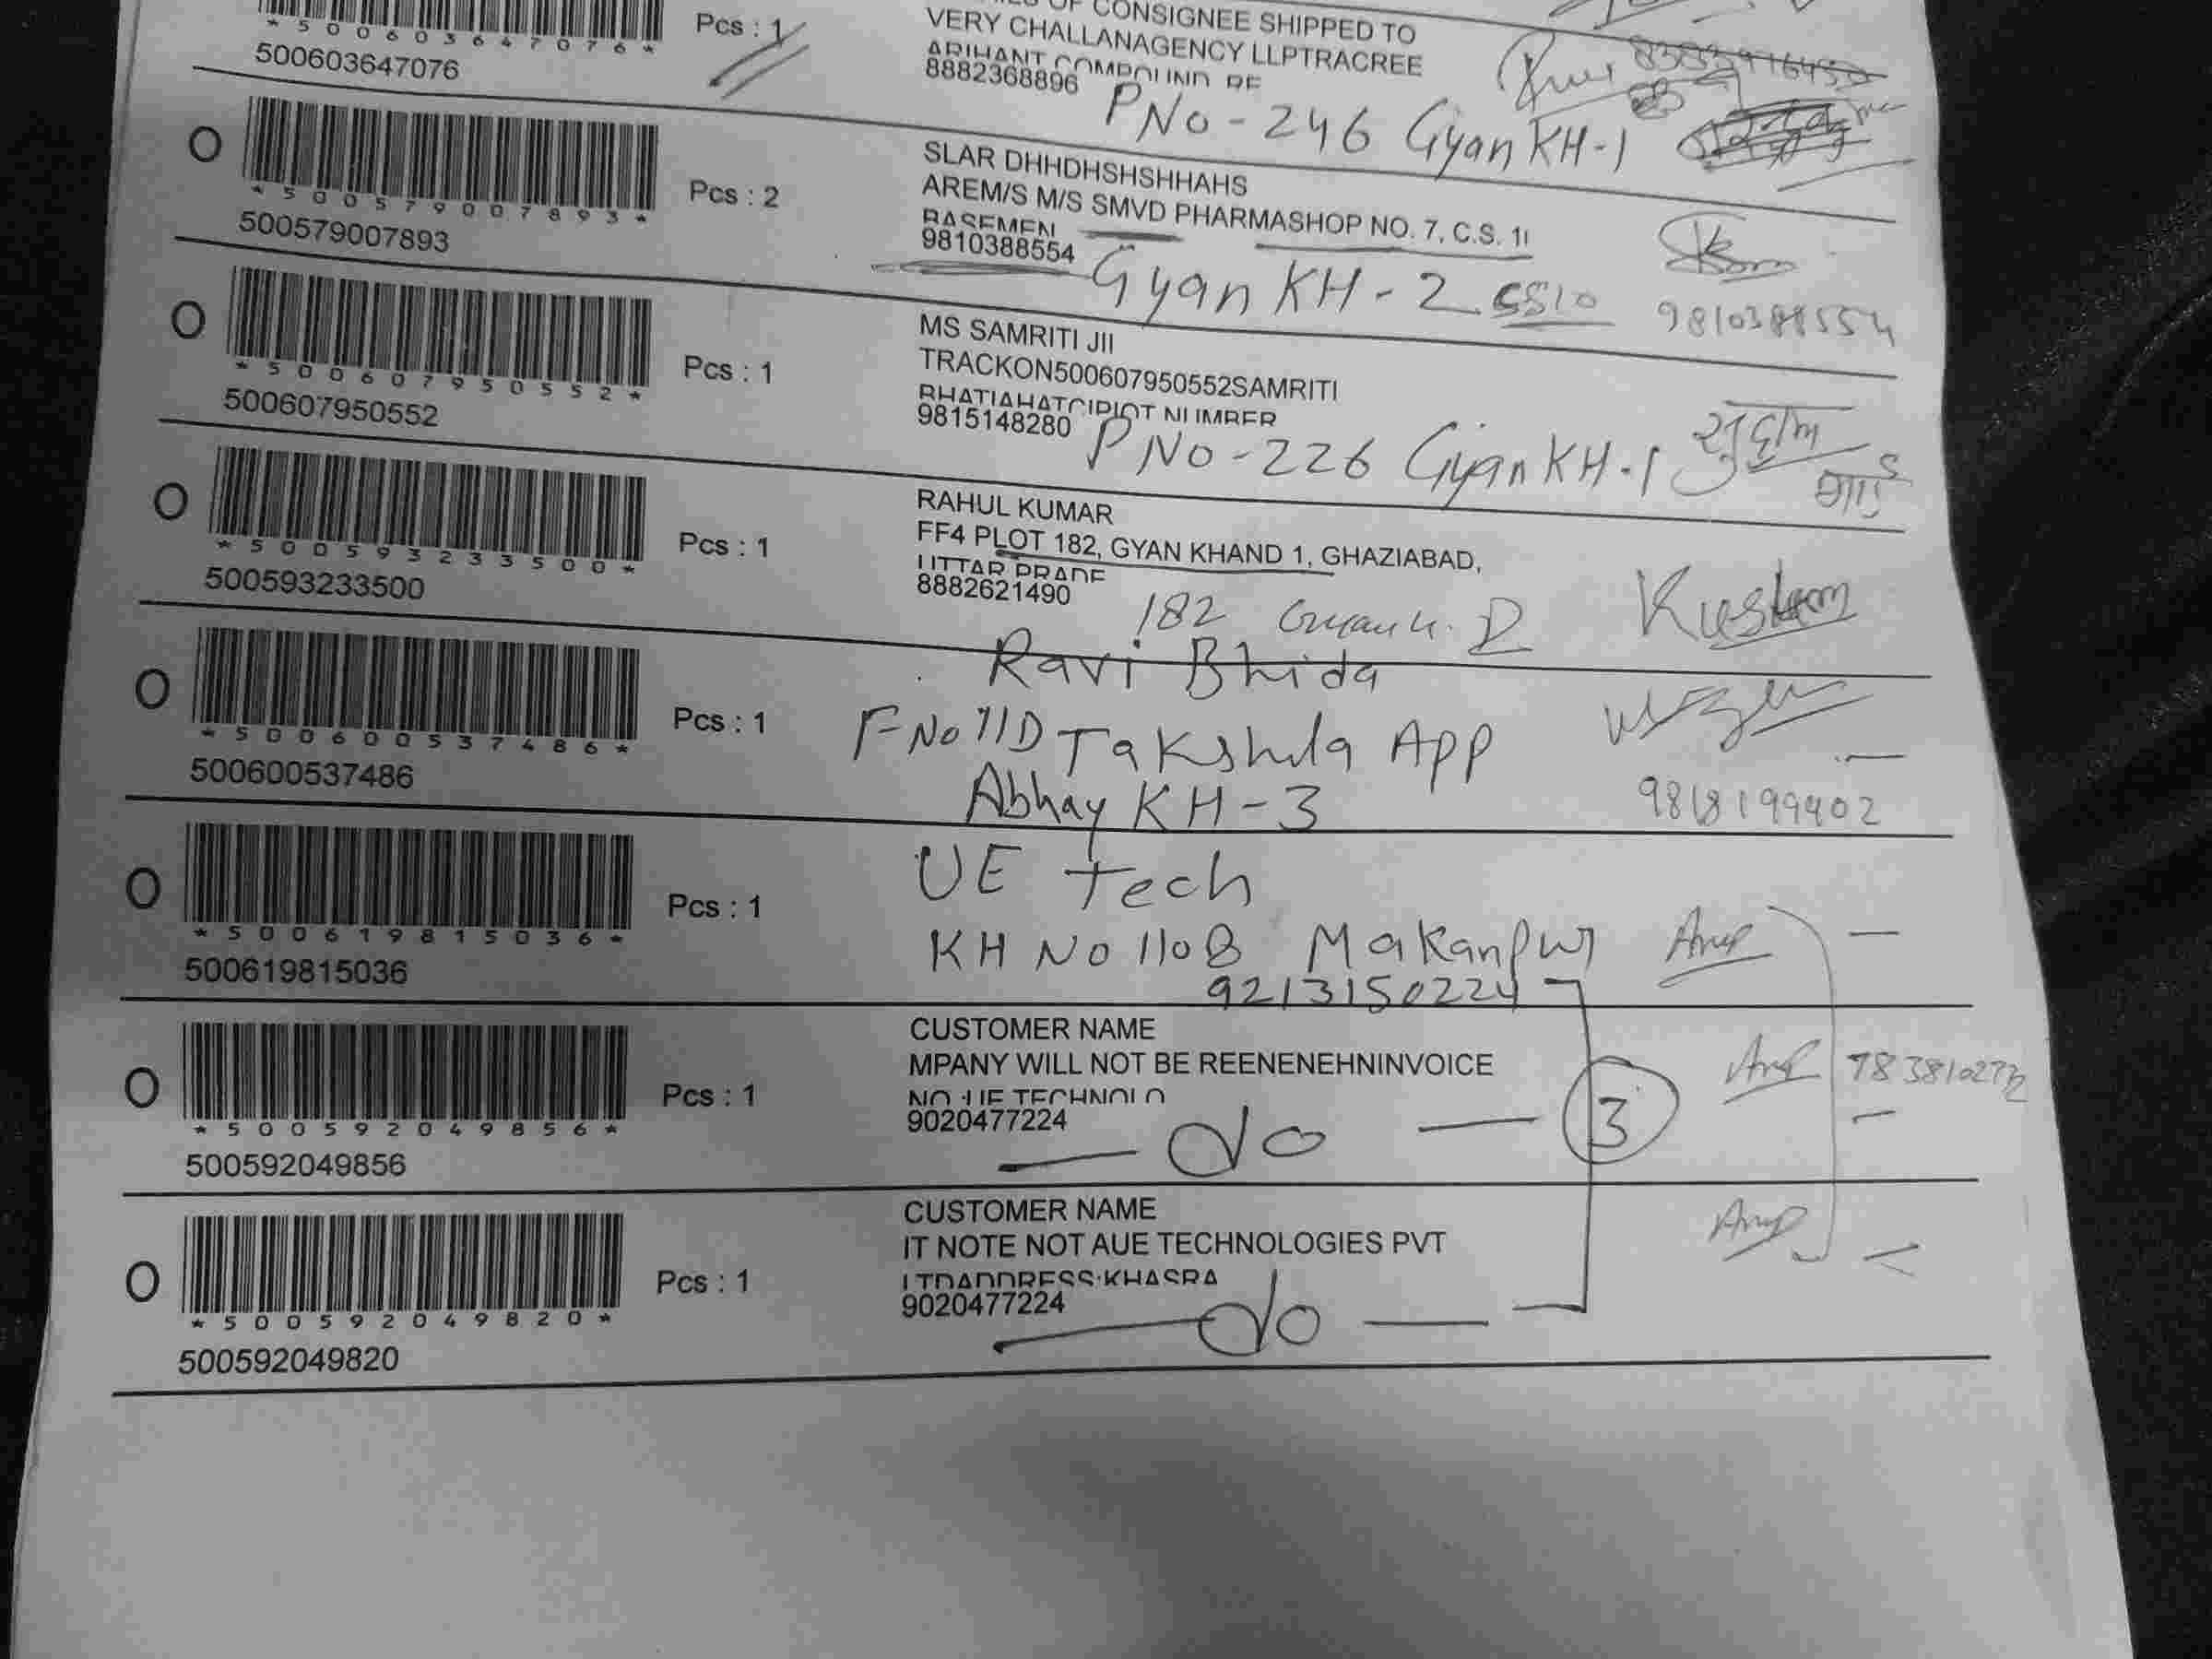 OF CONSIGNEE SHIPPED TO
*500603647076*
Pcs : 1
VERY CHALLANAGENCY LLPTRACREE
ARIHANT COMPOUND, RE
500603647076
8882368896
PNo-246 Gyan KH-1
SLAR DHHDHSHSHHAHS
*500579007893*
Pcs : 2
AREM/S M/S SMVD PHARMASHOP NO. 7, C.S. 1I
BASEMEN
500579007893
9810388554
Gyan KH-2
9810388554
MS SAMRITI JII
*500607950552*
Pcs : 1
TRACKON500607950552SAMRITI
BHATIAHATCIPIOT NUMBER
500607950552
9815148280
PNo-226 Gyan KH-1
RAHUL KUMAR
*500593233500*
Pcs : 1
FF4 PLOT 182, GYAN KHAND 1, GHAZIABAD,
UTTAR PRADE
500593233500
8882621490
182
Ravi Bhida
*500600537486*
Pcs : 1
F-No 11D Takshila App
500600537486
Abhay KH-3
9818199402
UE tech
*500619815036*
Pcs : 1
KH No 1108 Makanpur
500619815036
9213150224
CUSTOMER NAME
*500592049856*
Pcs : 1
MPANY WILL NOT BE REENENEHNINVOICE
NO :UE TECHNOLO
500592049856
9020477224
— do —
3
CUSTOMER NAME
*500592049820*
Pcs : 1
IT NOTE NOT AUE TECHNOLOGIES PVT
LTDADDRESS:KHASRA
500592049820
9020477224
— do —